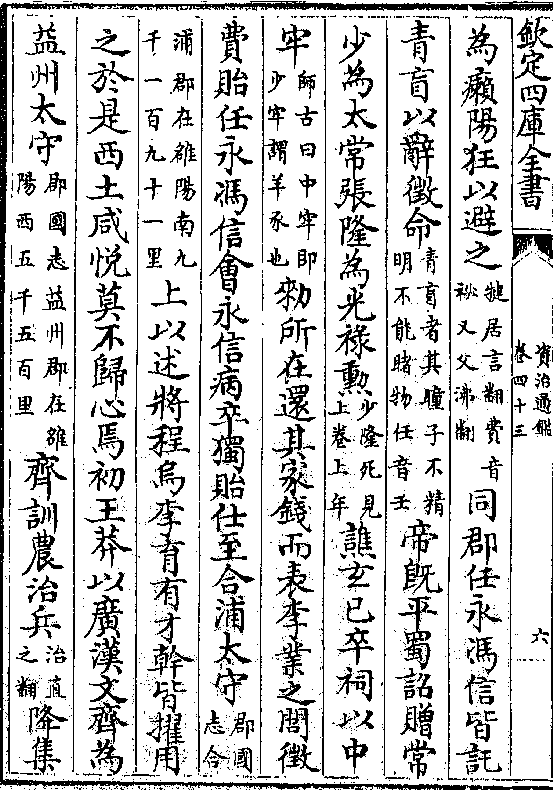 欽定四庫全書
資治通鑑
卷四十三
六
為癩陽狂以避之犍居言翻費音祕又父沸翻同郡任永馮信皆託
青盲以辭徵命青盲者其瞳子不精明不能睹物任音壬帝旣平蜀詔贈常
少為太常張隆為光祿勲少隆死見上卷上年譙玄已卒祠以中
牢師古曰中牢即少牢謂羊豕也勑所在還其家錢而表李業之閭徵
費貽任永馮信會永信病卒獨貽仕至合浦太守郡國志合
浦郡在雒陽南九千一百九十一里上以述將程烏李育有才幹皆擢用
之於是西土咸悅莫不歸心焉初王莽以廣漢文齊為
益州太守郡國志益州郡在雒陽西五千五百里齊訓農治兵治直之翻降集